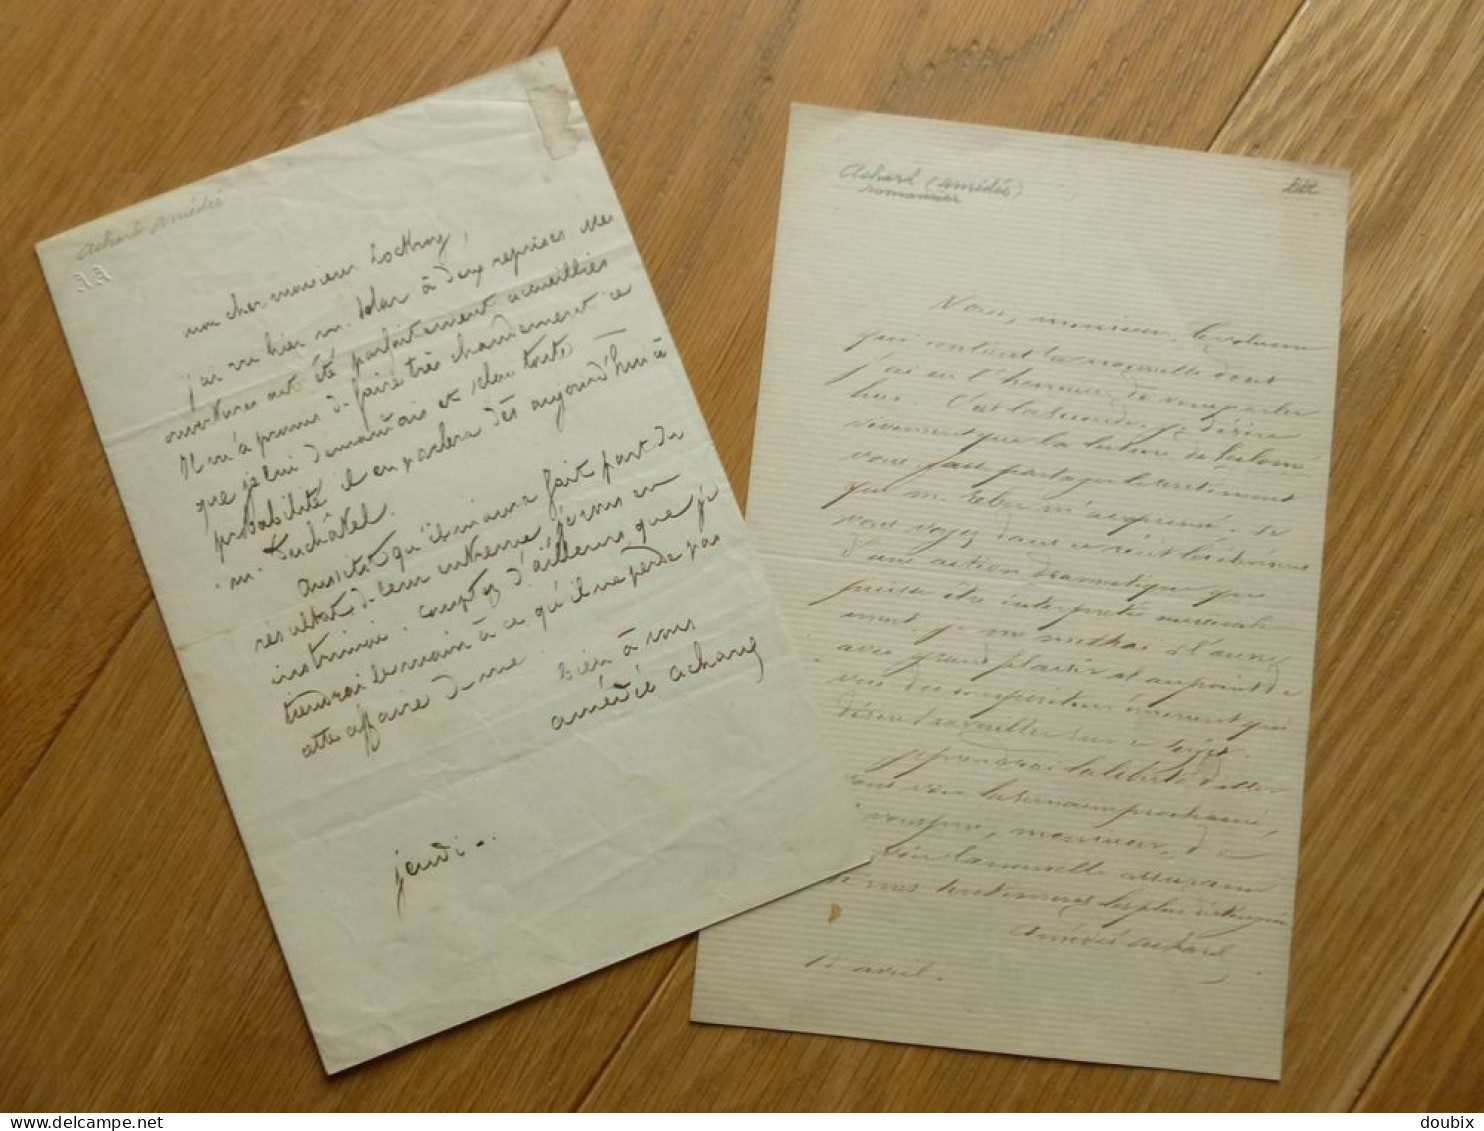 achard amédée
AA
mon cher monsieur Lockroy,
j'ai vu hier m. Solar à deux reprises. mes
ouvertures ont été parfaitement accueillies
Il m'a promis de faire très chaudement ce
que je lui demandais et selon toute
probabilité il en parlera dès aujourd'hui à
m. Duchâtel.
aussitôt qu'il m'aura fait part du
résultat de leur entrevue, je vous en
instruirai. comptez d'ailleurs que je
tiendrai la main à ce qu'il ne perde pas
cette affaire de vue.
bien à vous
amédée achard
jeudi..
Achard (Amédée)
romancier
litt
Voici, monsieur, le volume
qui contient la nouvelle dont
j'ai eu l'honneur de vous parler
hier. C'est la seconde. je désire
vivement que la lecture de
vous fasse partager le sentiment
que m. Reber m'a exprimé. Si
vous voyez dans ce récit les éléments
d'une action dramatique que
puisse être interprétée musicale
ment, je me mettrai à l'œuvre
avec grand plaisir et au point de
vue du compositeur éminent qui
désire travailler sur ce sujet.
je prendrai la liberté d'aller
vous voir la semaine prochaine,
vous prie, monsieur, de
la nouvelle assurance
de mes sentiments les plus distingués
Amédée Achard
15 avril.
delcampe.net
doubix